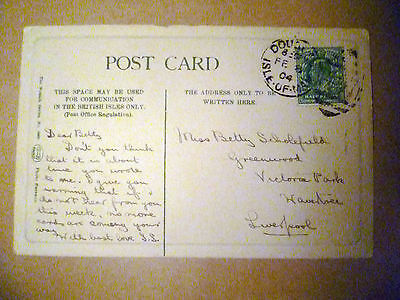 POST CARD
THIS SPACE MAY BE USED
FOR COMMUNICATION
IN THE BRITISH ISLES ONLY.
(Post Office Regulation).
THE ADDRESS ONLY TO BE
WRITTEN HERE.
DOU
FE
04
ISLE-OF-M
Dear Betty
Don't you think
that it is about
time you wrote
to me. I give you
warning that if I
do not hear from you
this week, no more
cards are coming your
way.
With best love
Miss Betty Scholefield
Greenwood
Victoria Park
Wavertree
Liverpool